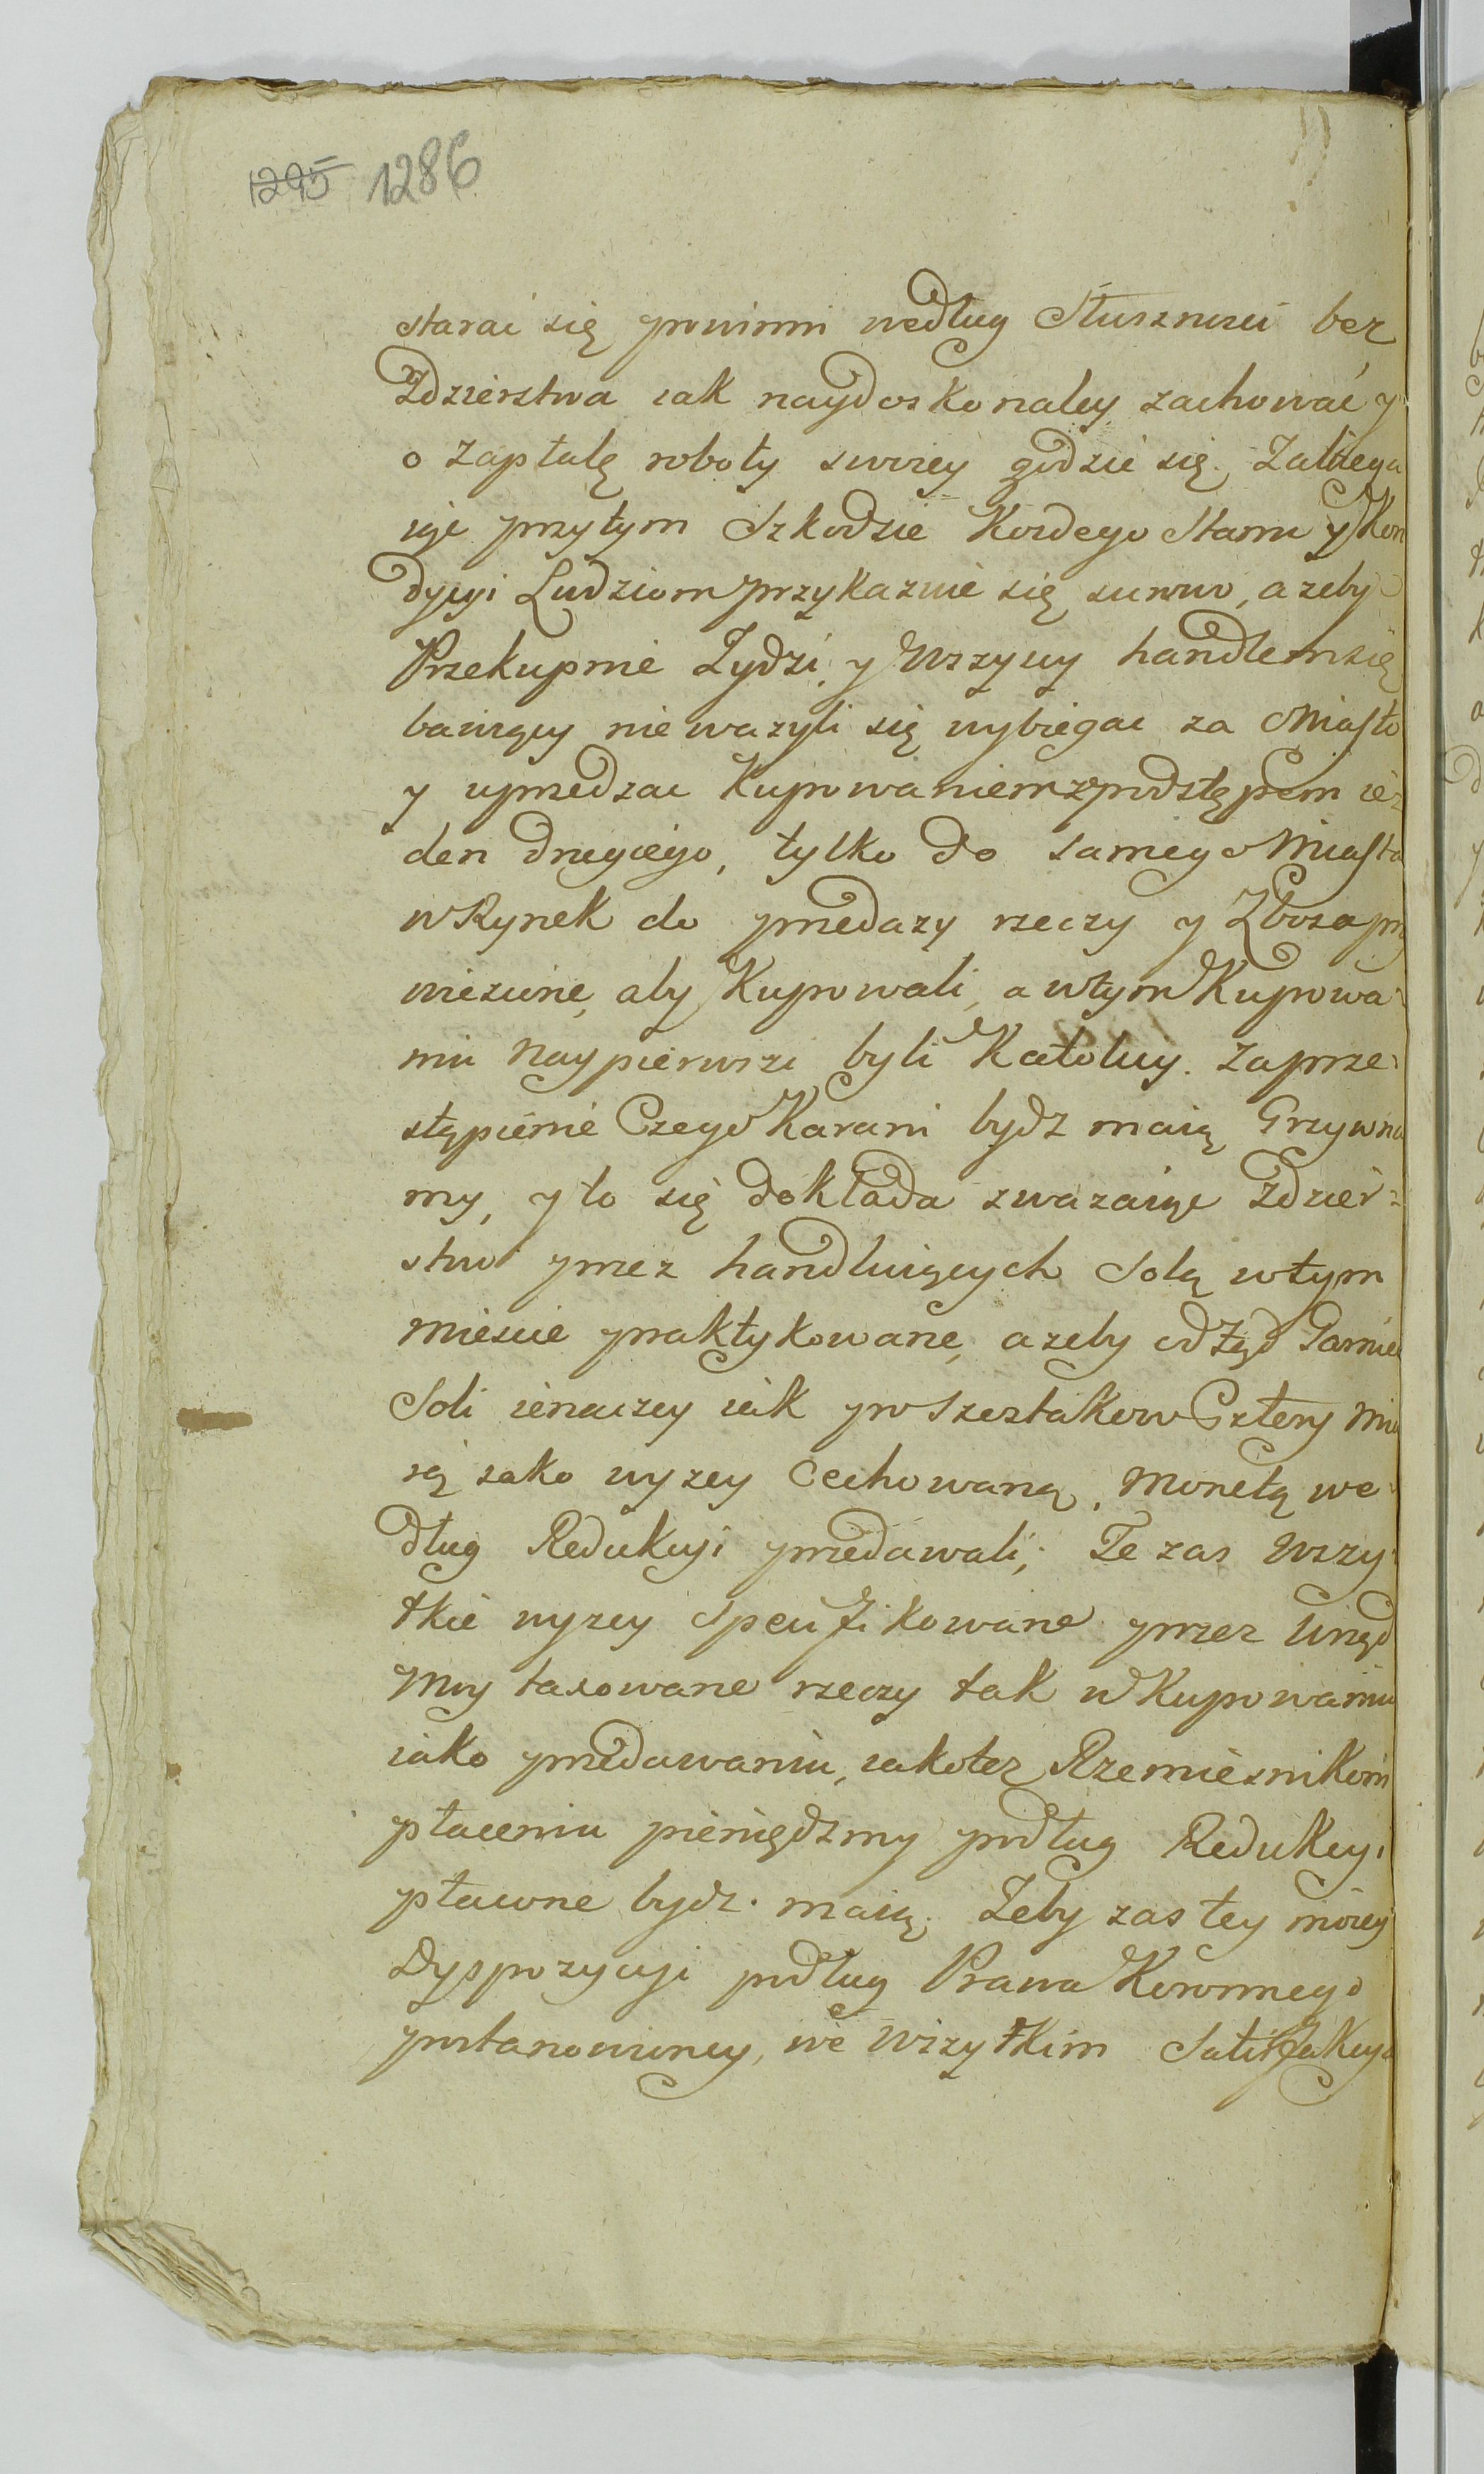 1295 1286
starać się powinni według Słusznosci bez
Zdzierstwa iak naydoskonaley zachować y
o Zapłatę roboty swoiey godzić się. Zabiega
iąc przytym Szkodzie Kozdego Stanu y Kon
dycyi Ludziom przykazuie się surowo, azeby
Przekupnie Zydzi y Wszyscy handlem się
bawiący nie wazyli się wybiegac za Miasto
y uprzedzac Kupowaniem z podstępem ie
den drugiego, tylko do samego Miasta
w Rynek do przedazy rzeczy y Zboza przy
wiezione, aby Kupowali, a wtym Kupowa
niu Naypierwsi byli Katolicy. Zaprze
stąpienie Czego Karani bydz maią Grzywna
my, y to się dokłada zwazaiąc Zdzier
stwo przez handluiących Solą wtym
Miescie praktykowane, azeby odtąd Garniec
Soli ienaczey iak po Szostakow Cztery Mia
rą iako wyzey Cechowaną, Monetą we
dług Redukcyi przedawali; Te zas Wszy
tkie wyzey specifikowane przez Urząd
Moy taxowane rzeczy tak w Kupowaniu
iako przedawaniu, iakotez Rzemiesnikom
płaceniu pieniądzmy podług Redukcyi
płacone bydz maią. Zeby zas tey moiey
Dyspozycyi podług Prawa Koronnego
postanowioney, we Wszytkim Satisfakcya